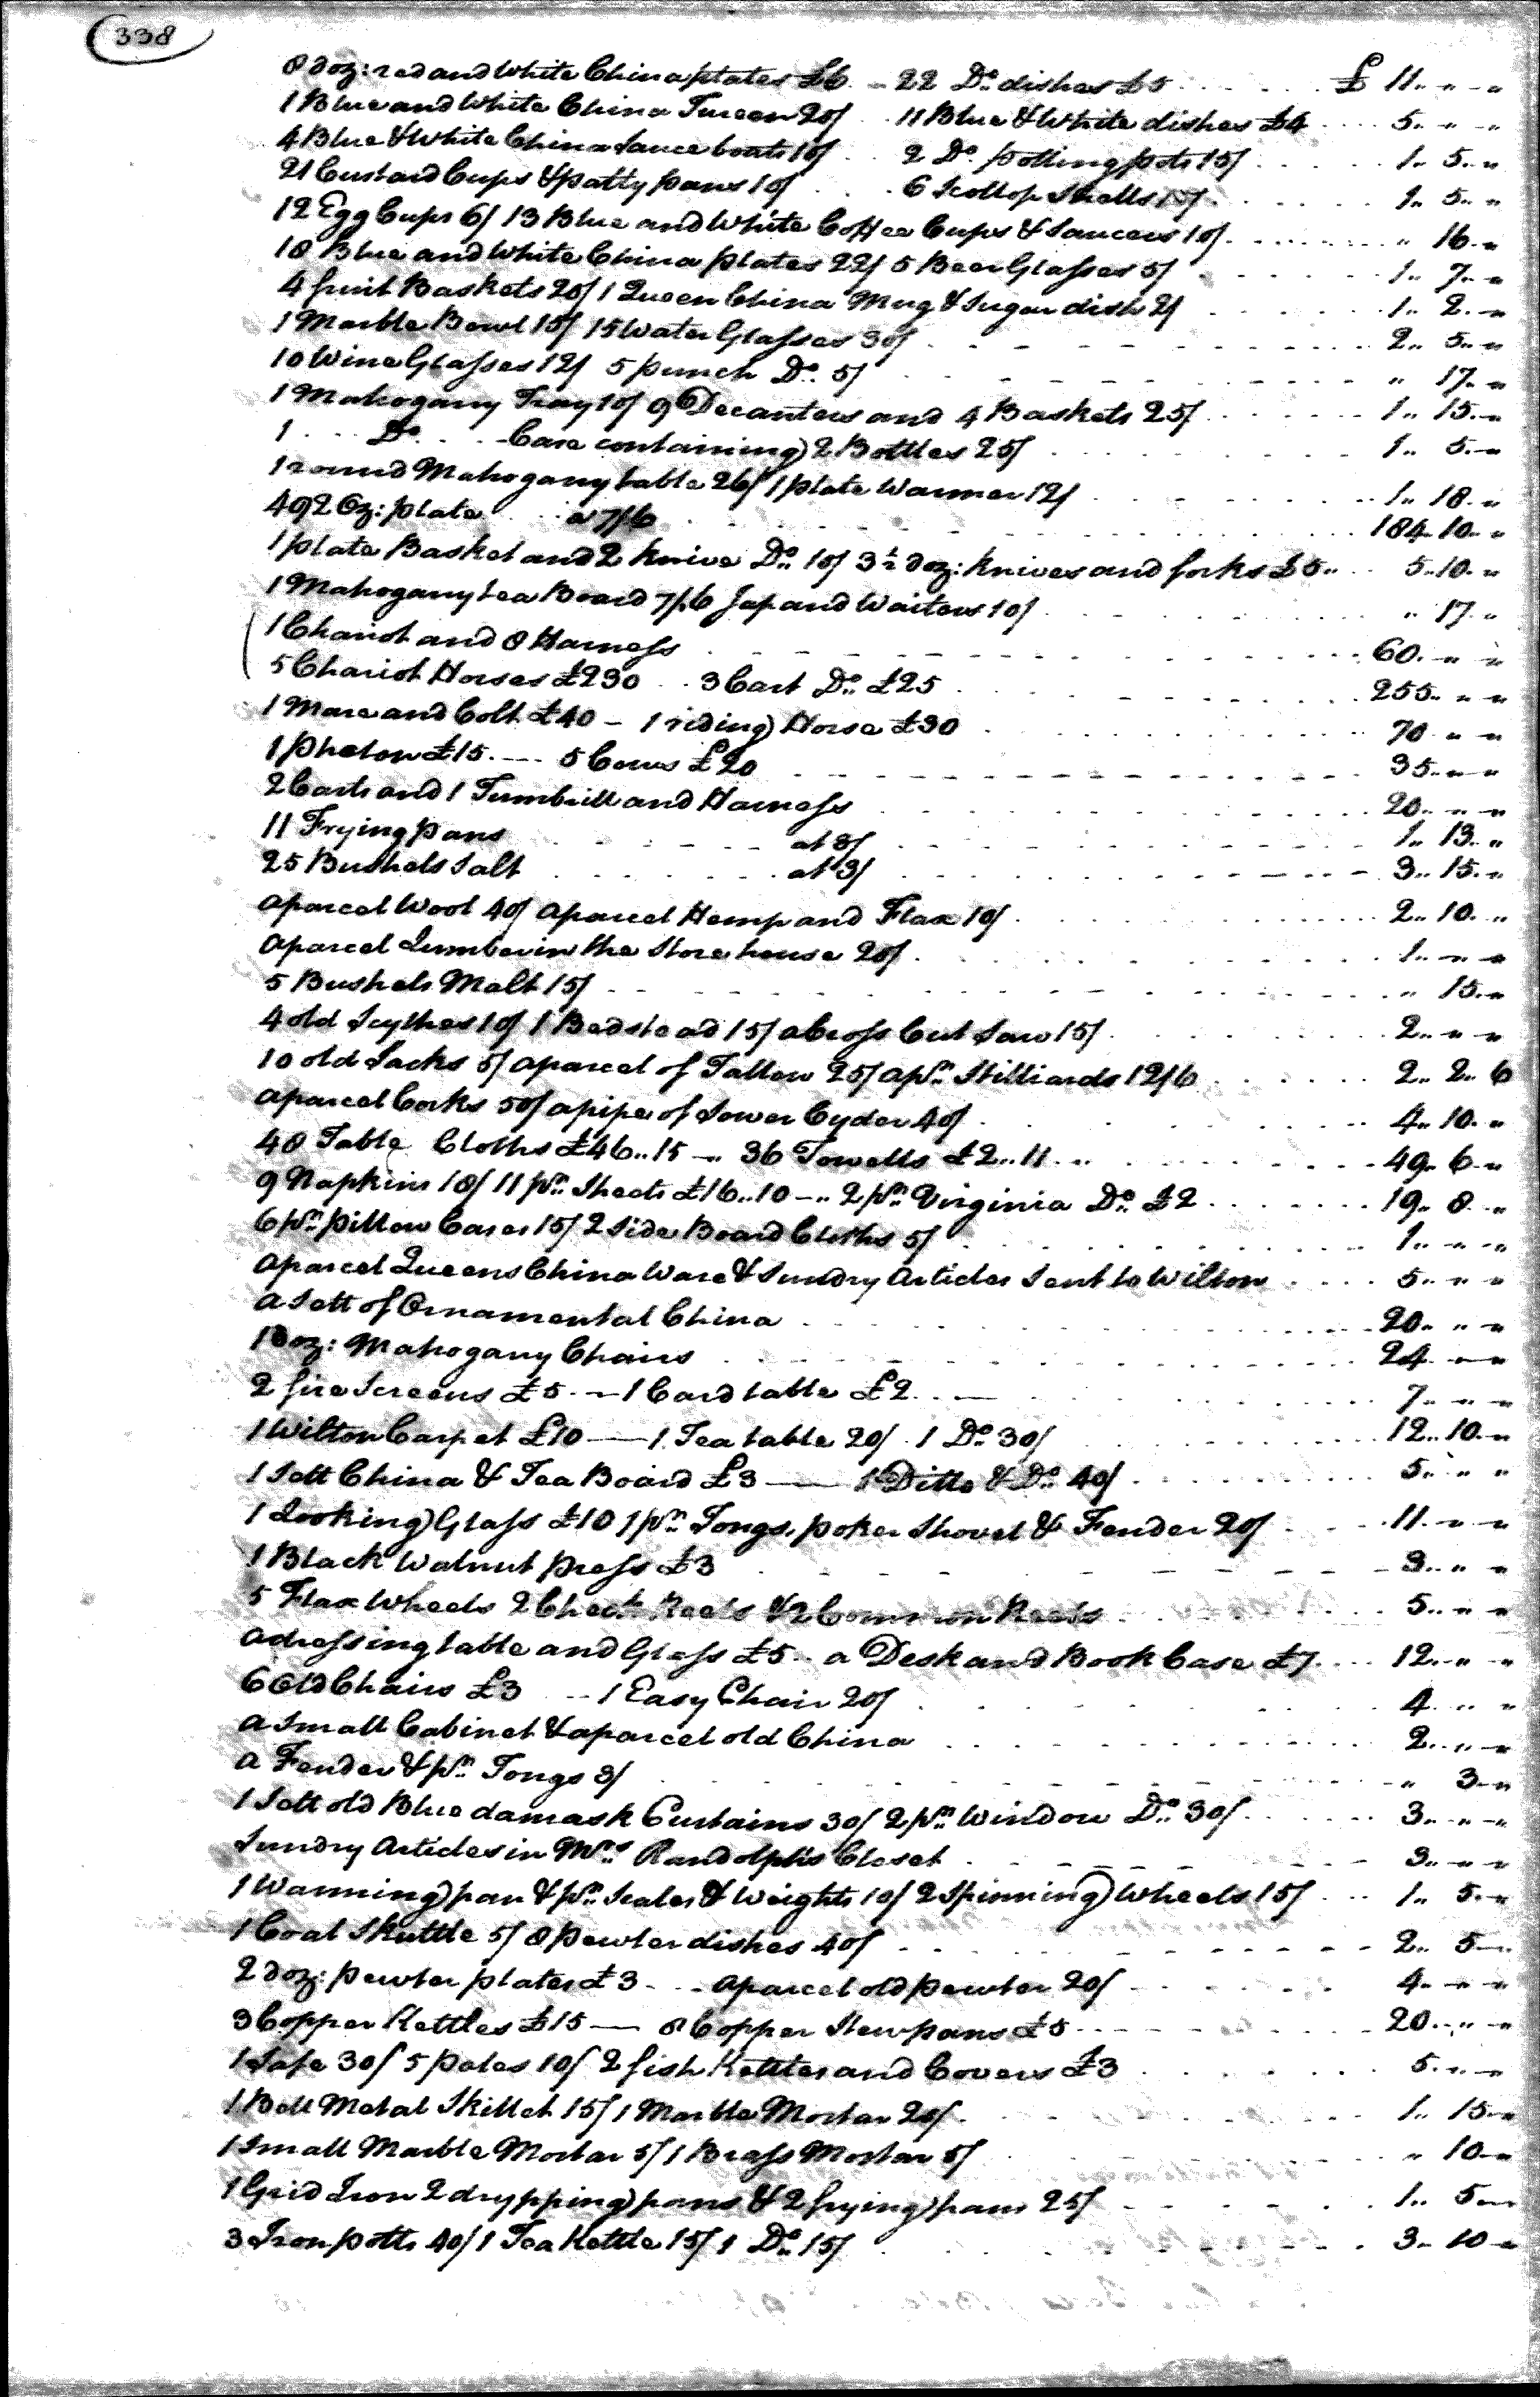 338
8 doz: red and White China plates £6 .. 22 Do. dishes £5 . . . . . £ 11.. " .. "
1 Blue and White China Tureen 20/ . . 11 Blue & White dishes £4 . . . . 5.. " .. "
4 Blue & White China Sauce boats 10/ . . 2 Do. potting pots 15/ . . . . 1.. 5.. "
21 Custard Cups & patty pans 10/ . . . 6 Scollop Shells 15/ . . . . 1.. 5.. "
12 Egg Cups 6/ 13 Blue and White Coffee Cups & Saucers 10/ . . . . " 16.. "
18 Blue and White China plates 22/ 5 Beer Glasses 5/ . . . . 1.. 7.. "
4 fruit Baskets 20/ 1 Queen China Mug & Sugar dish 2/ . . . . 1.. 2.. "
1 Marble Bowl 15/ 15 Water Glasses 30/ . . . . 2.. 5.. "
10 Wine Glasses 12/ 5 punch Do. 5/ . . . . " 17.. "
1 Mahogany Tray 10/ 9 Decanters and 4 Baskets 25/ . . . . 1.. 15.. "
1 . . . Do. . . . Case containing 2 Bottles 25/ . . . . 1.. 5.. "
1 round Mahogany table 26/ 1 plate Warmer 12/ . . . . 1.. 18.. "
492 Oz: plate . . . a 7/6 . . . . 184.. 10.. "
1 plate Basket and 2 knive Do. 10/ 3½ doz: knives and forks £5 .. . . 5.. 10.. "
1 Mahogany tea Board 7/6 Jap and Waiters 10/ . . . . " 17.. "
1 Chariot and 8 Harness . . . . 60.. " .. "
5 Chariot Horses £230 . . 3 Cart Do. £25 . . . . 255.. " .. "
1 Mare and Colt £40 - 1 riding Horse £30 . . . . 70 " .. "
1 Pheton £15 .--. 5 Cows £20 . . . . 35.. " .. "
2 Carts and 1 Tumbrill and Harness . . . . 20.. " .. "
11 Frying pans . . . . at 3/ . . . . 1.. 13.. "
25 Bushels Salt . . . . at 3/ . . . . 3.. 15.. "
a parcel Wool 40/ a parcel Hemp and Flax 10/ . . . . 2.. 10.. "
a parcel Lumber in the Store house 20/ . . . . 1.. " .. "
5 Bushels Malt 15/ . . . . " 15.. "
4 old Scythes 10/ 1 Bedstead 15/ a Cross Cut Saw 15/ . . . . 2.. " .. "
10 old Sacks 5/ a parcel of Tallow 25/ a pr. Stilliards 12/6 . . . . 2.. 2.. 6
a parcel Corks 50/ a pipe of Sower Cyder 40/ . . . . 4.. 10.. "
48 Table Cloths £46..15 -.. 36 Towells £2..11 .. . . . . 49.. 6.. "
9 Napkins 18/ 11 pr. Sheets £16..10 -.. 2 pr. Virginia Do. £2 . . . . 19.. 8.. "
6 pr. pillow Cases 15/ 2 Side Board Cloths 5/ . . . . 1.. " .. "
a parcel Queens China Ware & Sundry Articles Sent to Wilton . . . . 5.. " .. "
a Sett of Ornamental China . . . . 20.. " .. "
1 Doz: Mahogany Chairs . . . . 24.. " .. "
2 fire Screens £5 .-- 1 Card table £2 . . -- . . . . 7.. " .. "
1 Wilton Carpet £10 -- 1 Tea table 20/ . 1 Do. 30/ . . . . 12.. 10.. "
1 Sett China & Tea Board £3 -- 1 Ditto & Do. 40/ . . . . 5.. " "
1 Looking Glass £10 1 pr. Tongs, poker Shovel & Fender 20/ . . . . 11.. " .. "
1 Black Walnut press £3 . . . . 3.. " .. "
5 Flax Wheels 2 Check Reels & 2 Common Reels . . . . 5.. " .. "
a dressing table and Glass £5 .. a Desk and Book Case £7 . . . . 12.. " .. "
6 Old Chairs £3 .. 1 Easy Chair 20/ . . . . 4.. .. "
a Small Cabinet & a parcel old China . . . . 2.. " .. "
a Fender & pr. Tongs 3/ . . . . " 3.. "
1 Sett old Blue damask Curtains 30/ 2 pr. Window Do. 30/ . . . . 3.. " .. "
Sundry Articles in Mrs. Randolph's Closet . . . . 3.. " .. "
1 Warming pan & pr. Scales & Weights 10/ 2 Spinning Wheels 15/ . . . . 1.. 5.. "
1 Coal Skuttle 5/ 8 pewter dishes 40/ . . . . 2.. 5..
2 doz: pewter plates £3 . . . a parcel old pewter 20/ . . . . 4.. " .. "
3 Copper Kettles £15 -- 8 Copper Stewpans £5 . . . . 20.. " .. "
1 Safe 30/ 5 pales 10/ 2 fish Kettles and Covers £3 . . . . 5.. " .. "
1 Bell Metal Skillet 15/ 1 Marble Mortar 20/ . . . . 1.. 15.. "
1 Small Marble Mortar 5/ 1 Brass Mortar 5/ . . . . " 10.. "
1 Grid Iron 2 drypping pans & 2 frying pans 25/ . . . . 1.. 5.. "
3 Iron potts 40/ 1 Tea Kettle 15/ 1 Do. 15/ . . . . 3.. 10 "